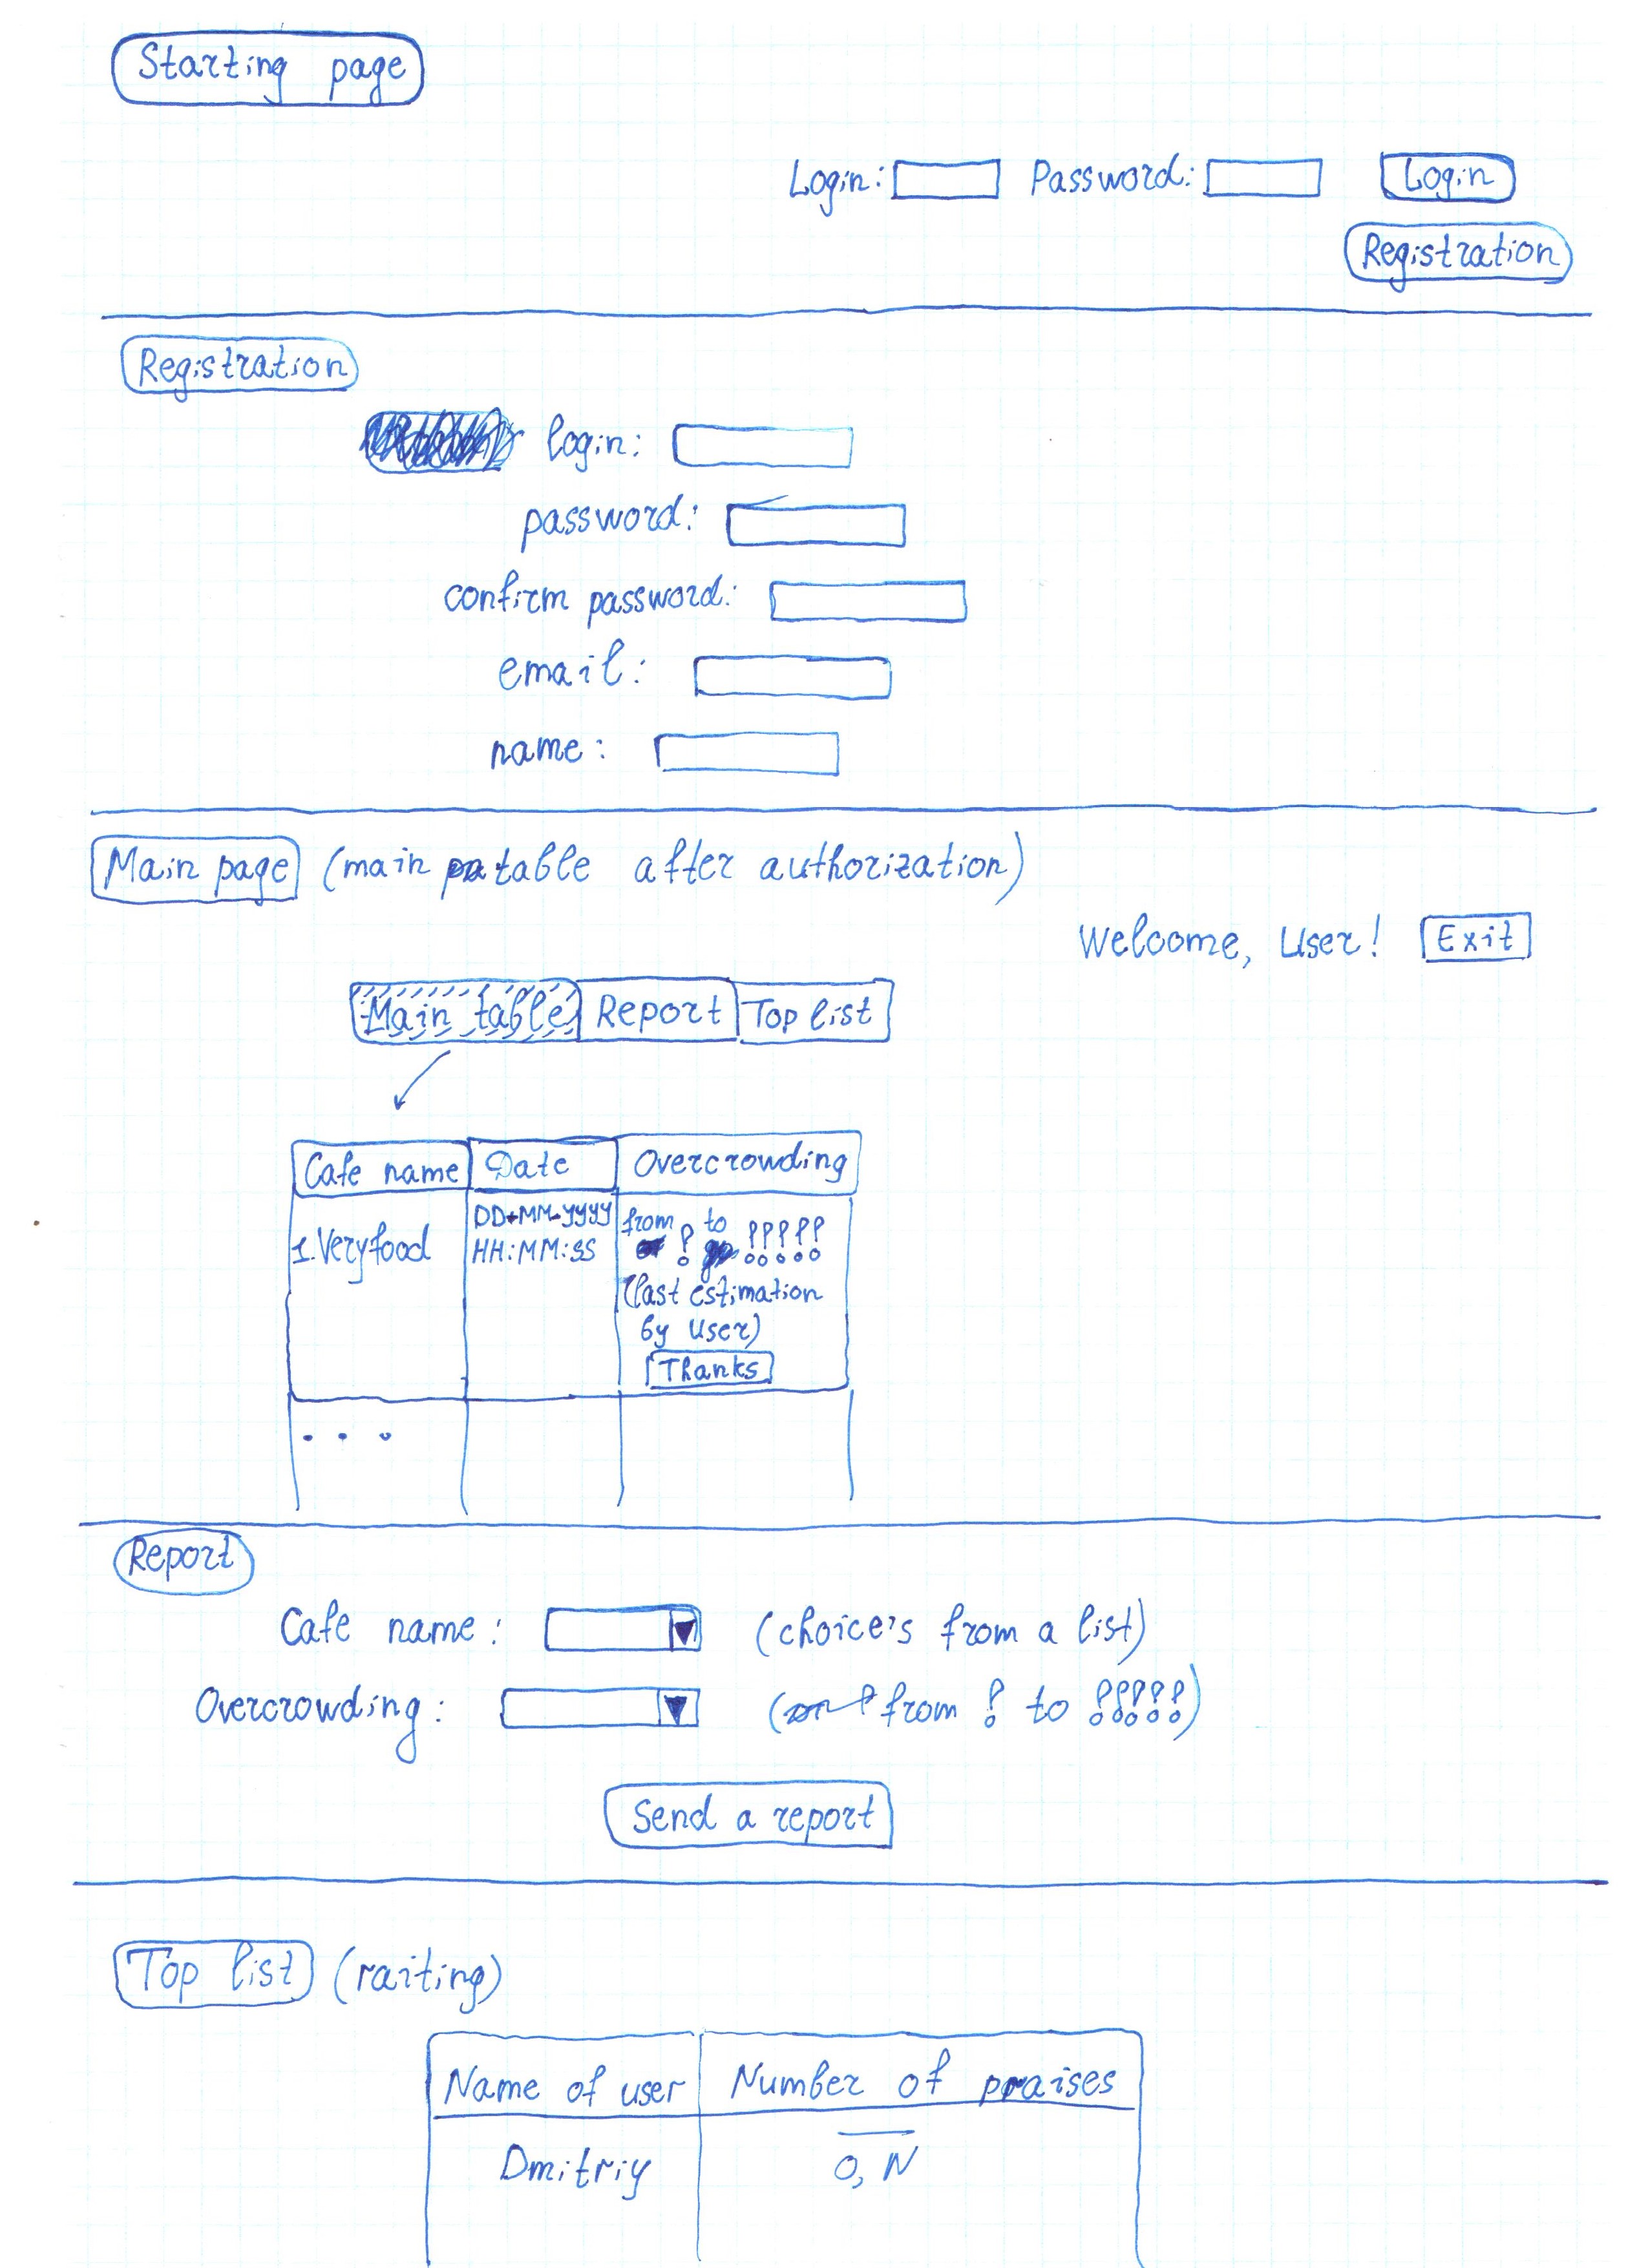 Starting page
Login: Password: Login
Registration
Registration
login:
password:
confirm password:
email:
name:
Main page (main table after authorization)
Welcome, User! Exit
Main table Report Top list
Cafe name Date Overcrowding
1. Veryfood DD-MM-YYYY from ! to !!!!!
HH:MM:SS
(last estimation
by user)
Thanks
...
Report
Cafe name: (choice's from a list)
Overcrowding: (from ! to !!!!!)
Send a report
Top list (raiting)
Name of user Number of praises
Dmitriy 0, N